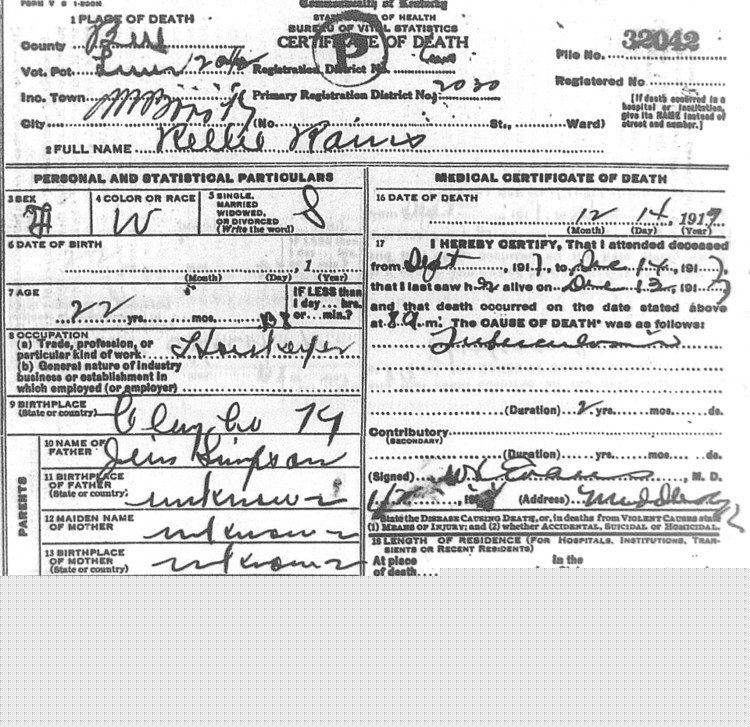 FORM V S 1-200M
Commonwealth of Kentucky
STATE BOARD OF HEALTH
BUREAU OF VITAL STATISTICS
CERTIFICATE OF DEATH
1 PLACE OF DEATH
County Bell
Vot. Pct. Registration District No.
File No. 32042
Inc. Town Primary Registration District No. 2020
Registered No
City (No St., Ward)
[If death occurred in a hospital or institution, give its NAME instead of street and number.]
2 FULL NAME Nellie Rains
P
PERSONAL AND STATISTICAL PARTICULARS
3 SEX F
4 COLOR OR RACE W
5 SINGLE, MARRIED WIDOWED, OR DIVORCED (Write the word) S
6 DATE OF BIRTH
, 1
(Month) (Day) (Year)
7 AGE
22 yrs. mos. ds
IF LESS than
1 day... hrs.
or... min.?
8 OCCUPATION
(a) Trade, profession, or
particular kind of work
(b) General nature of industry
business or establishment in
which employed (or employer)
9 BIRTHPLACE
(State or country) Clay Co Ky
PARENTS
10 NAME OF
FATHER Jim Simpson
11 BIRTHPLACE
OF FATHER
(State or country) unknown
12 MAIDEN NAME
OF MOTHER unknown
13 BIRTHPLACE
OF MOTHER
(State or country) unknown
MEDICAL CERTIFICATE OF DEATH
16 DATE OF DEATH
12 14, 1917
(Month) (Day) (Year)
17 I HEREBY CERTIFY, That I attended deceased
from Sept, 1917, to Dec 14, 1917,
that I last saw her alive on Dec 13, 1917,
and that death occurred on the date stated above
at 8 A m. The CAUSE OF DEATH* was as follows:
Tuberculosis
(Duration) 2 yrs. mos. ds.
Contributory
(SECONDARY)
(Duration) yrs. mos. ds.
(Signed) Evans, M. D.
, 19 (Address)
*State the DISEASE CAUSING DEATH, or, in deaths from VIOLENT CAUSES state
(1) MEANS OF INJURY; and (2) whether ACCIDENTAL, SUICIDAL or HOMICIDAL.
18 LENGTH OF RESIDENCE (FOR HOSPITALS, INSTITUTIONS, TRAN-
SIENTS OR RECENT RESIDENTS)
At place In the
of death